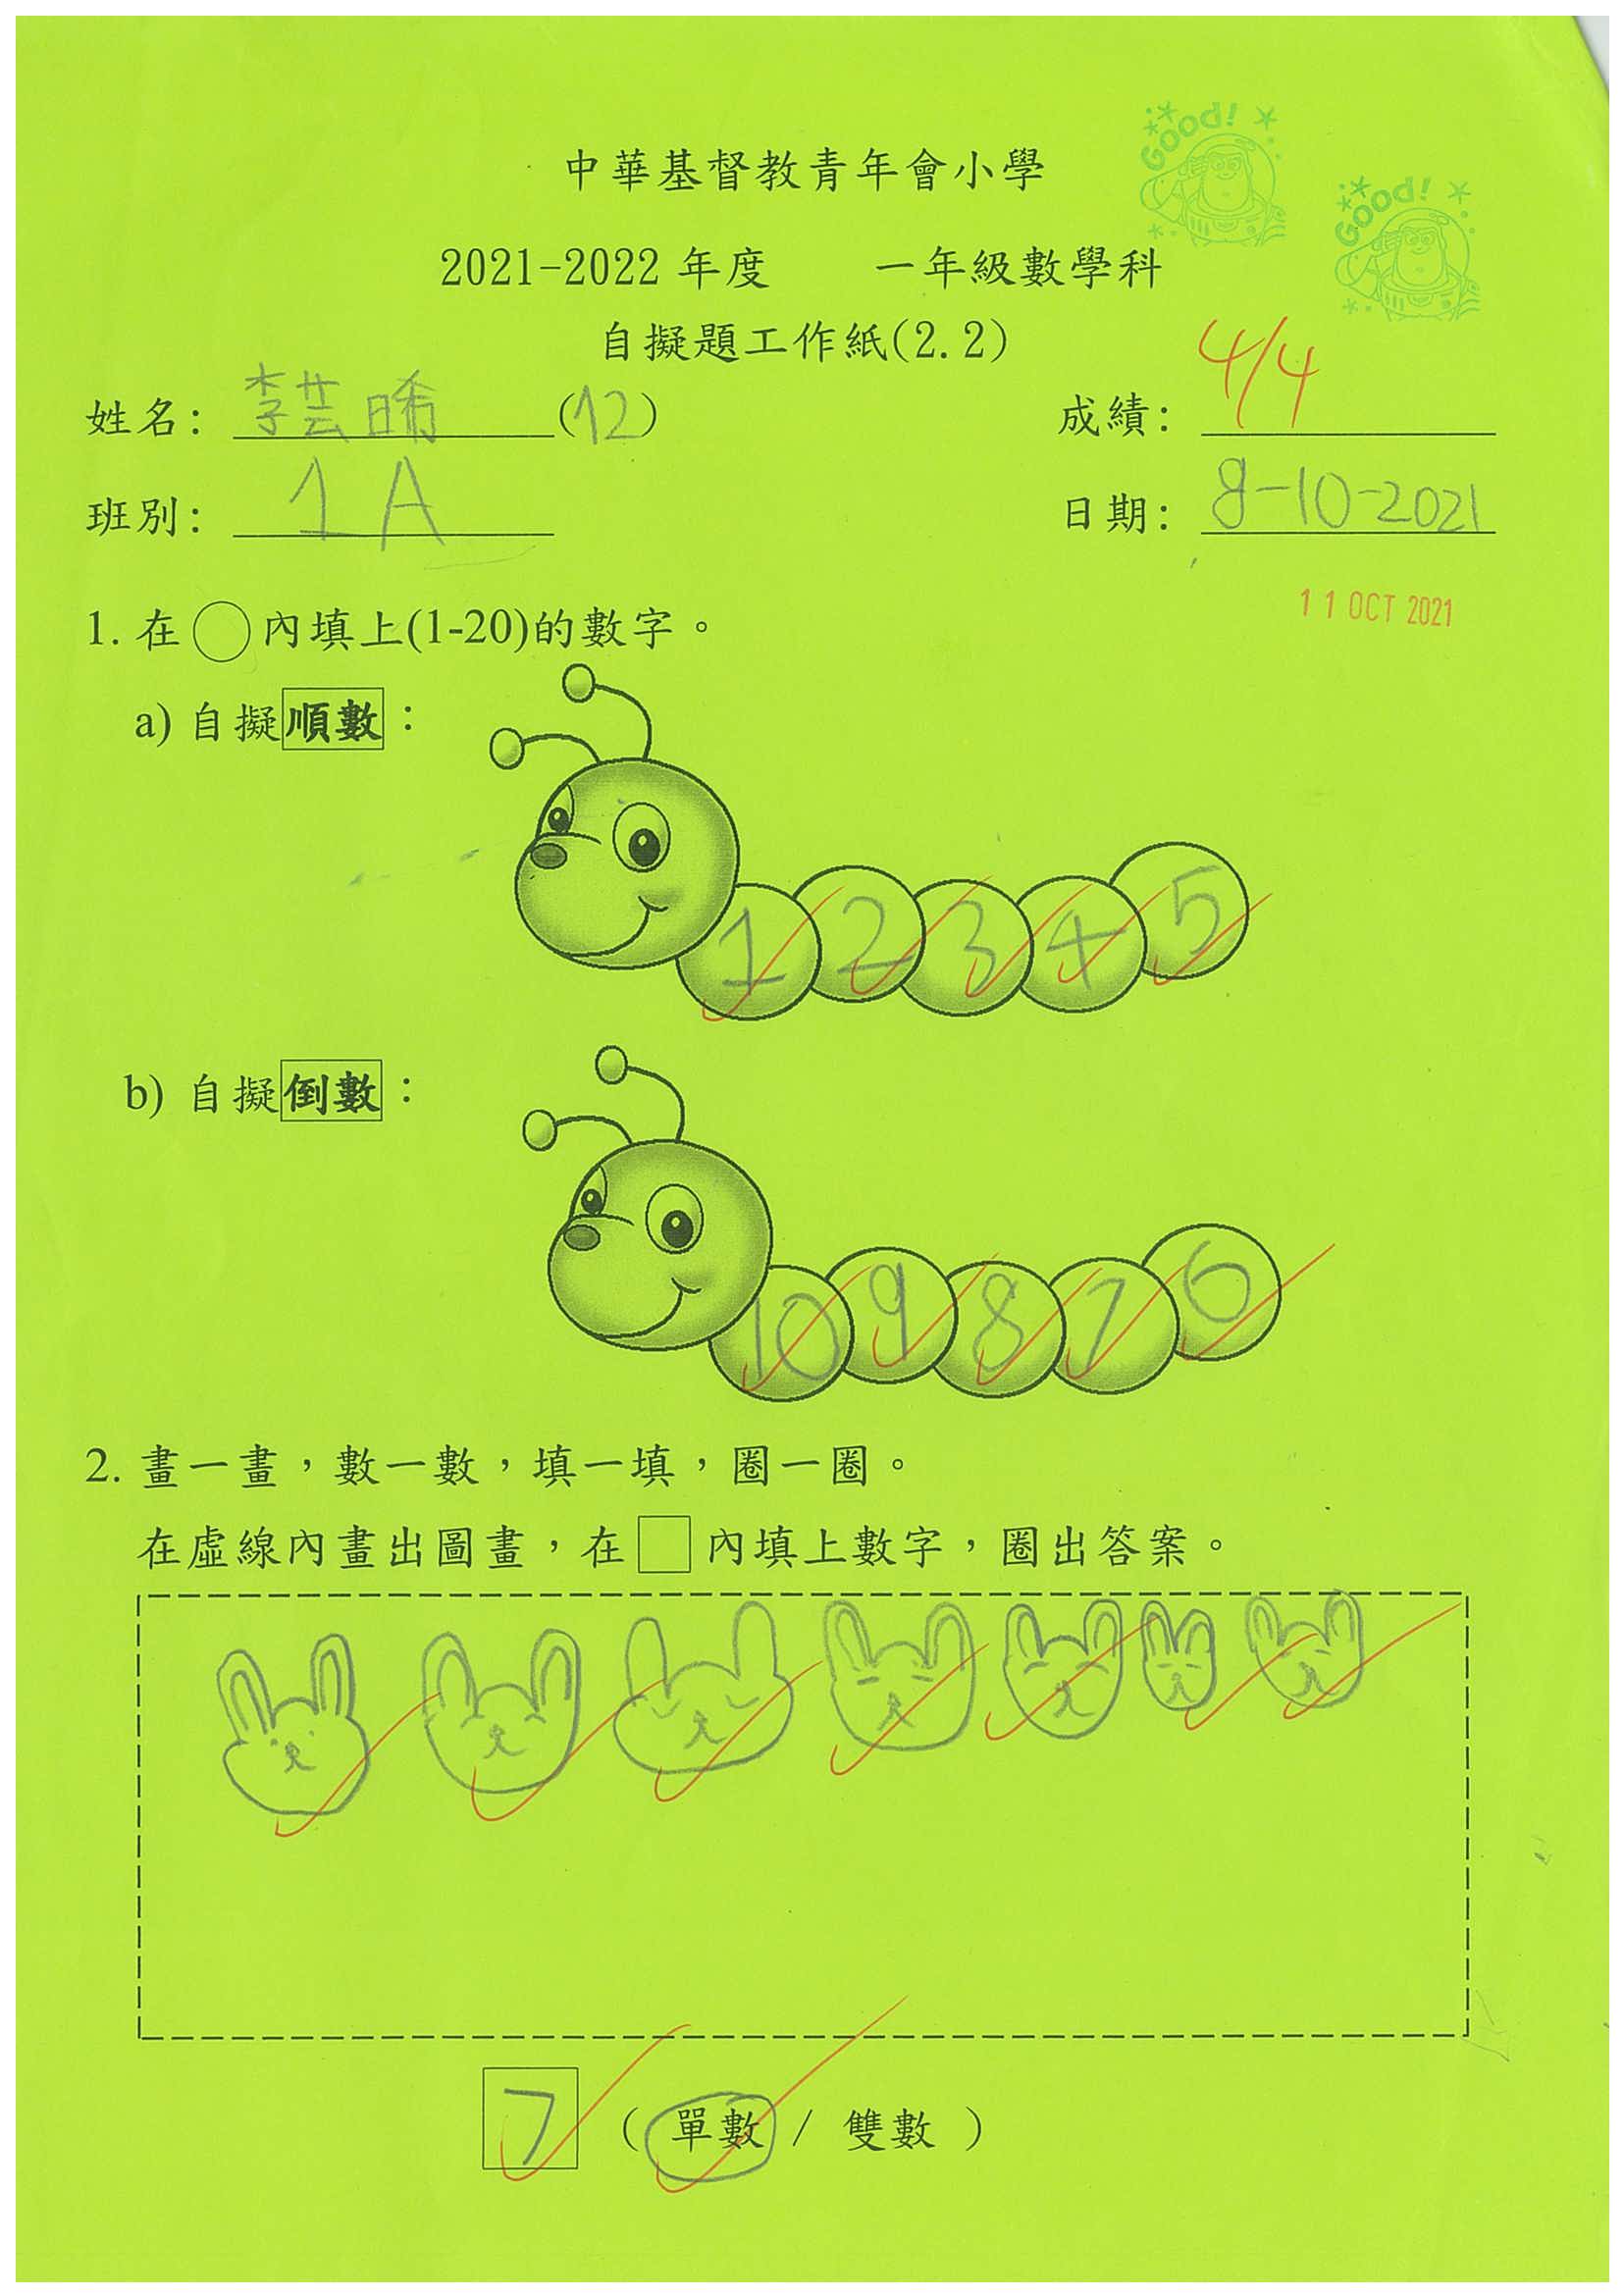 Good!
Good!
中華基督教青年會小學
2021-2022 年度 一年級數學科
自擬題工作紙(2.2)
姓名: 李芸晞 (12) 成績: 4/4
班別: 1A 日期: 8-10-2021
11 OCT 2021
1. 在○內填上(1-20)的數字。
a) 自擬順數：
1 2 3 4 5
b) 自擬倒數：
10 9 8 7 6
2. 畫一畫，數一數，填一填，圈一圈。
在虛線內畫出圖畫，在□內填上數字，圈出答案。
7 ( 單數 / 雙數 )